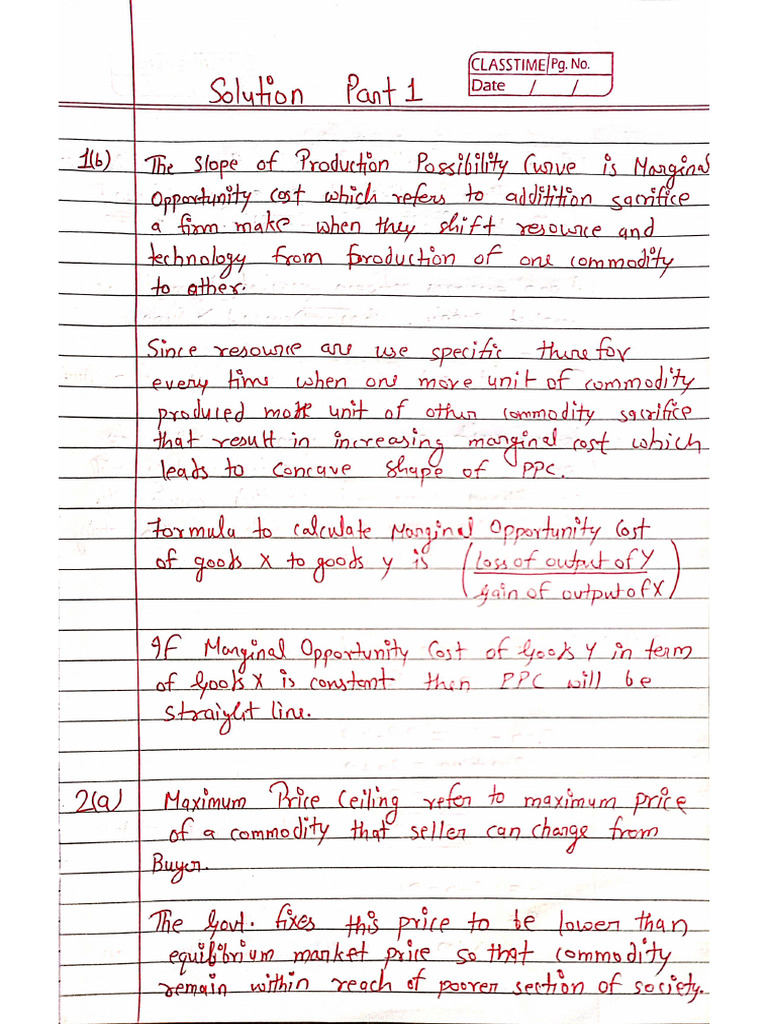 CLASSTIME Pg. No.
Date / /
Solution Part 1
1(b) The slope of Production Possibility Curve is Marginal
Opportunity cost which refers to addittion sacrifice
a firm make when they shift resource and
technology from production of one commodity
to other.
Since resource are use specific therefor
every time when one more unit of commodity
produced more unit of other commodity sacrifice
that result in increasing marginal cost which
leads to concave shape of PPC.
Formula to calculate Marginal Opportunity Cost
of goods X to goods y is (Loss of output of Y
Gain of output of X)
If Marginal Opportunity Cost of Goods Y in term
of Goods X is constant then PPC will be
straight line.
2(a) Maximum Price Ceiling refer to maximum price
of a commodity that seller can charge from
Buyer.
The Govt. fixes this price to be lower than
equilibrium market price so that commodity
remain within reach of poorer section of society.